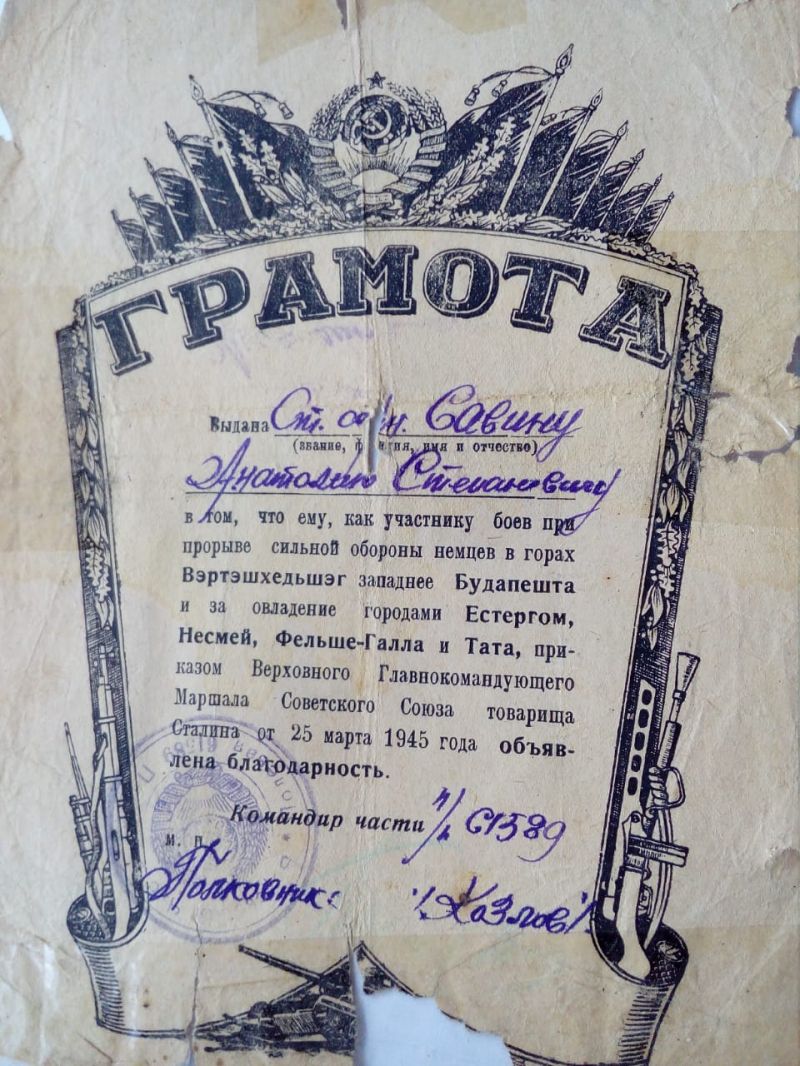 ГРАМОТА
Выдана Ст. Савину
(звание, имя и отчество)
Анатолию Степановичу
в том, что ему, как участнику боев при
прорыве сильной обороны немцев в горах
Вэртэшхедьшэг западнее Будапешта
и за овладение городами Естергом,
Несмей, Фельше-Галла и Тата, при-
казом Верховного Главнокомандующего
Маршала Советского Союза товарища
Сталина от 25 марта 1945 года объяв-
лена благодарность.
Командир части п/п 61589
м. п.
Полковник /Козлов/